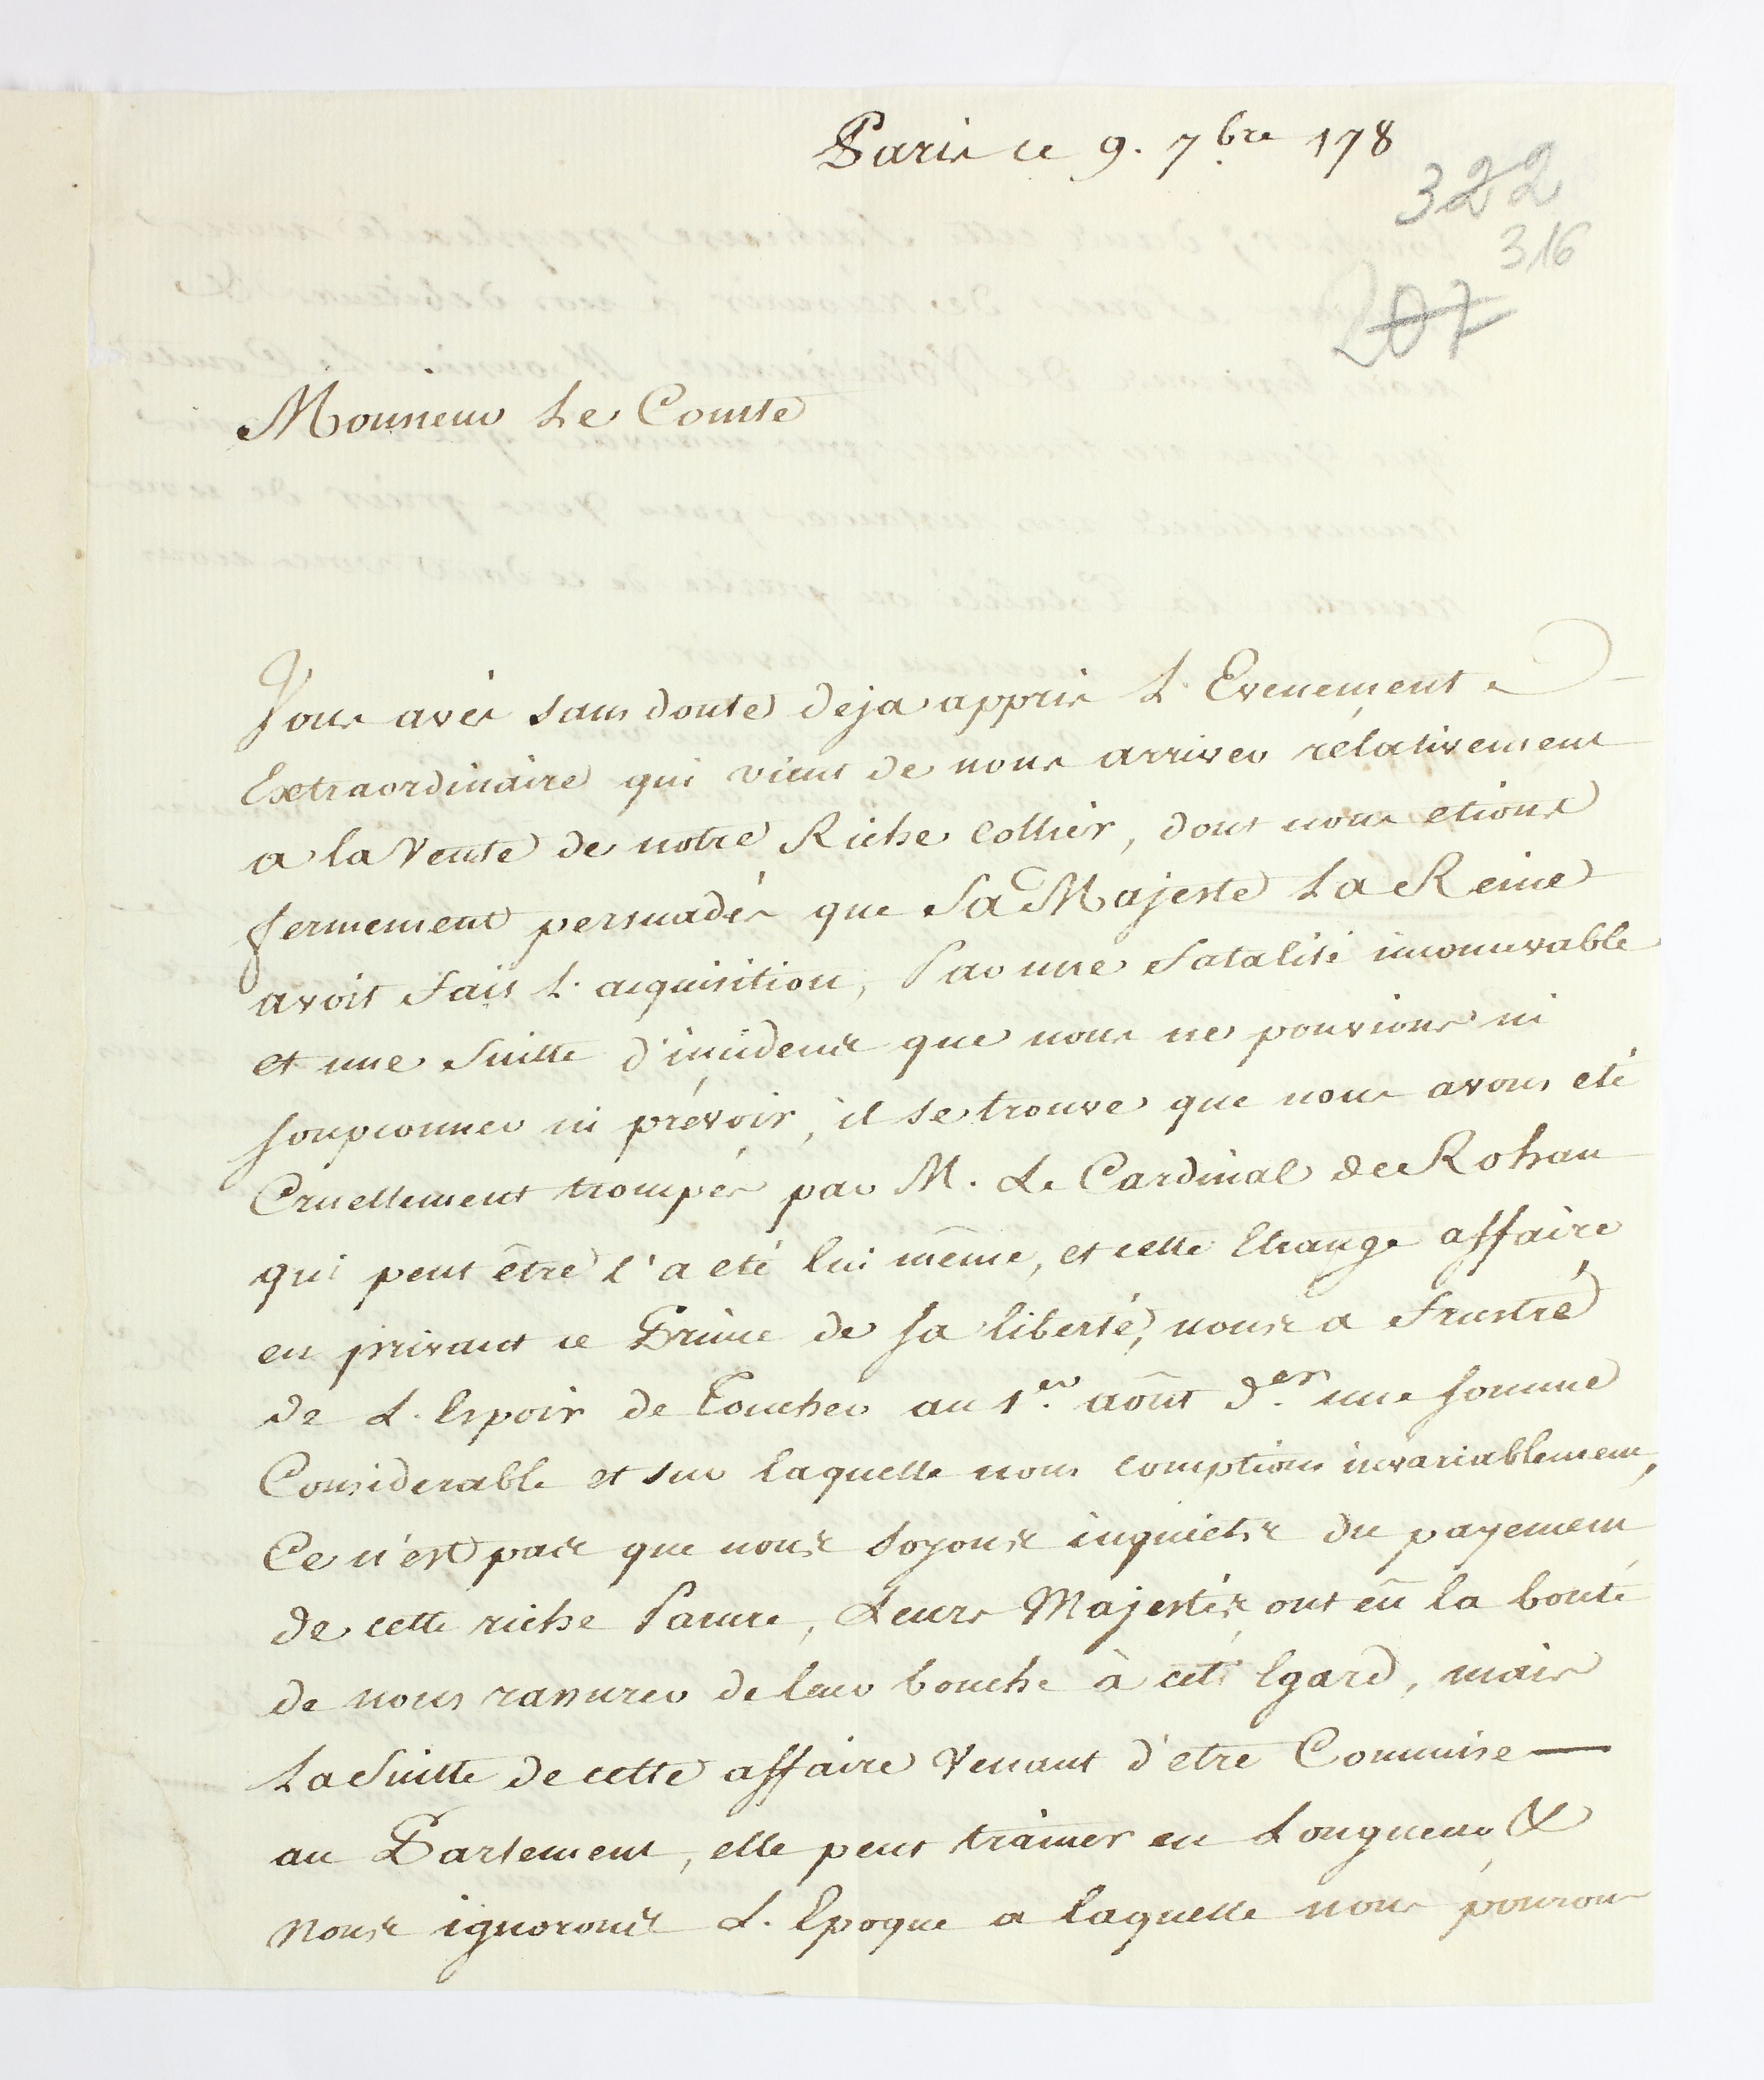 Paris ce 9. 7.bre 178
322
316
207
Monsieur Le Comte
Vous avés sans doute deja appris L'Evenement
Extraordinaire qui vient de nous arriver rélativement
a la Vente de notre Riche Collier, dont nous etions
fermement persuadés que Sa Majeste La Reine
avoit fait L'acquisition, Par une fatalité inconcevable
et une Suitte d'incidents que nous ne pouvions ni
soupconner ni prévoir, il se trouve que nous avons eté
Cruellement trompés par M. Le Cardinal de Rohan
qui peut être l'a eté lui même, et cette Etrange affaire
en privant ce Prince de sa liberté, nous a frustré
de L'Espoir de Toucher au 1.er août d.er une somme
Considerable et sur laquelle nous comptions invariablement,
Ce n'est pas que nous soyons inquiets du payement
de cette riche Parure, Leurs Majestés ont eû la bonté
de nous rassurer de leur bouche à cet Egard, mais
La Suitte de cette affaire Venant d'etre Commise
au Parlement, elle peut trainer en Longueur &
nous ignorons L'Epoque a laquelle nous pourons